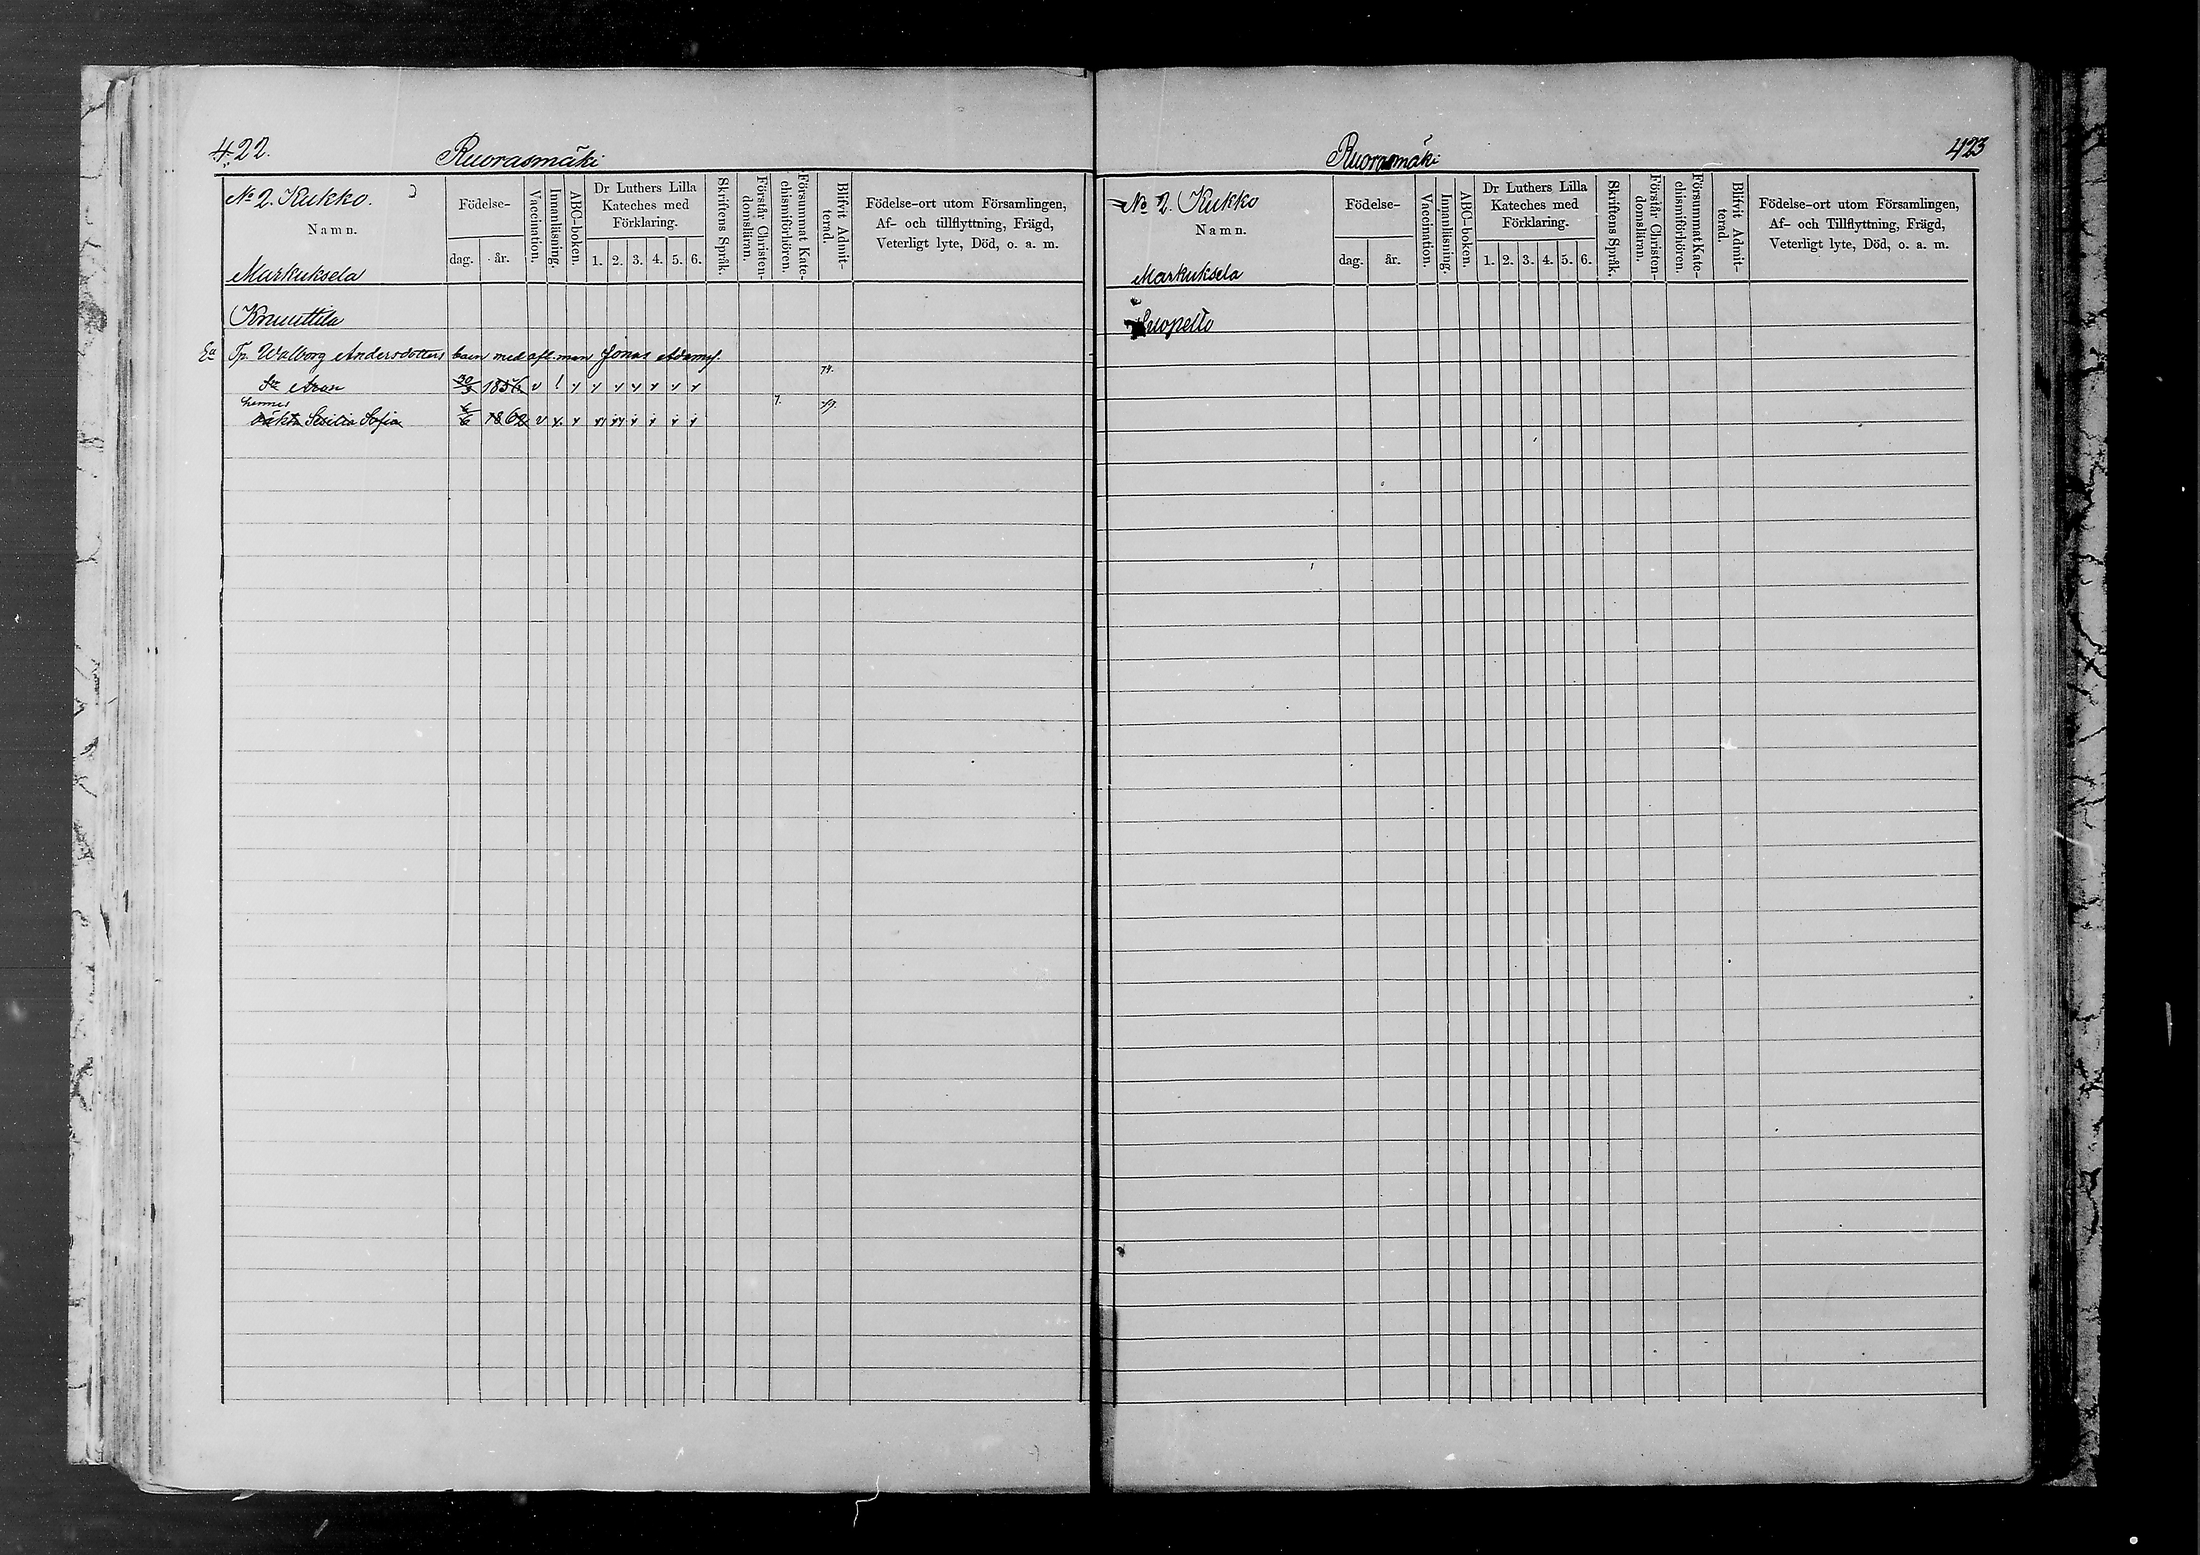 422.
Ruorasmäki
No 2. Kukko.
Namn.
Markuksela
Födelse-
dag. år.
Vaccination.
Innanläsning.
ABC-boken.
Dr Luthers Lilla
Kateches med
Förklaring.
1. 2. 3. 4. 5. 6.
Skriftens Språk.
Förstår Christen-
domsläran.
Försummat Kate-
chismiförhören.
Blifvit Admit-
terad.
Födelse-ort utom Församlingen,
Af- och tillflyttning, Frägd,
Veterligt lyte, Död, o. a. m.
Knuuttila
Tp. Walborg Andersdotters barn med afl. man Jonas Adamss.
Sn Aron 30/3 1856 74.
hennes
oäkta Sesilia Sofia 6/6 1862 7. 79.
423
Ruorasmäki
No 2. Kukko
Namn.
Markuksela
Födelse-
dag. år.
Vaccination.
Innanläsning.
ABC-boken.
Dr Luthers Lilla
Kateches med
Förklaring.
1. 2. 3. 4. 5. 6.
Skriftens Språk.
Förstår Christen-
domsläran.
Försummat Kate-
chismiförhören.
Blifvit Admit-
terad.
Födelse-ort utom Församlingen,
Af- och Tillflyttning, Frägd,
Veterligt lyte, Död, o. a. m.